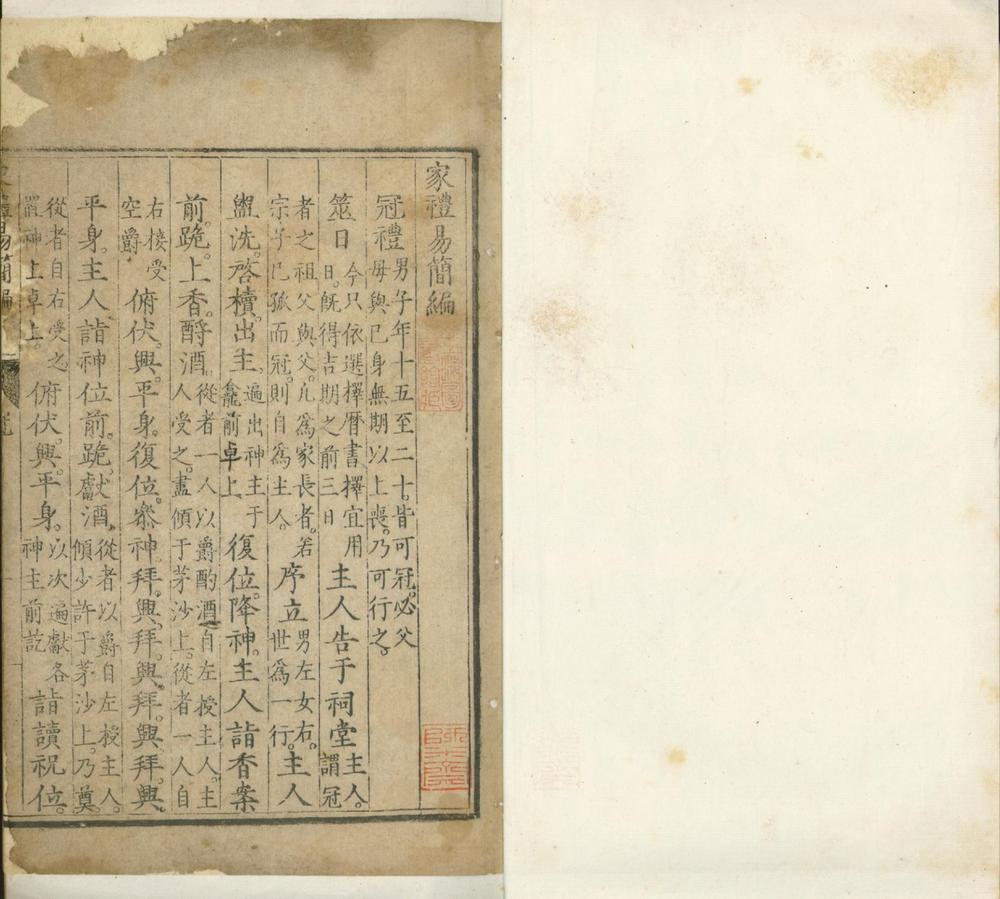 家禮易簡編
冠禮男子年十五至二十。皆可冠。必父母與己身無期以上喪。乃可行之。
筮日今只依選擇曆書擇宜用日。既得吉期之前三日主人告于祠堂主人。謂冠
者之祖父與父。凡為家長者。若宗子已孤而冠。則自為主人。序立男左女右。世為一行。主人
盥洗。啓櫝。出主。遍出神主于龕前卓上復位。降神。主人詣香案
前。跪。上香。酹酒從者一人以爵酌酒自左授主人。主人受之。盡傾于茅沙上。從者一人自
右接受空爵俯伏。興。平身。復位。叅神。拜。興。拜。興。拜。興。拜。興。
平身。主人詣神位前。跪。獻酒。從者以爵自左授主人。傾少許于茅沙上。乃奠。
從者自右受之置神上卓上。俯伏。興。平身。以次遍獻各神主前訖詣讀祝位。
禮易簡編